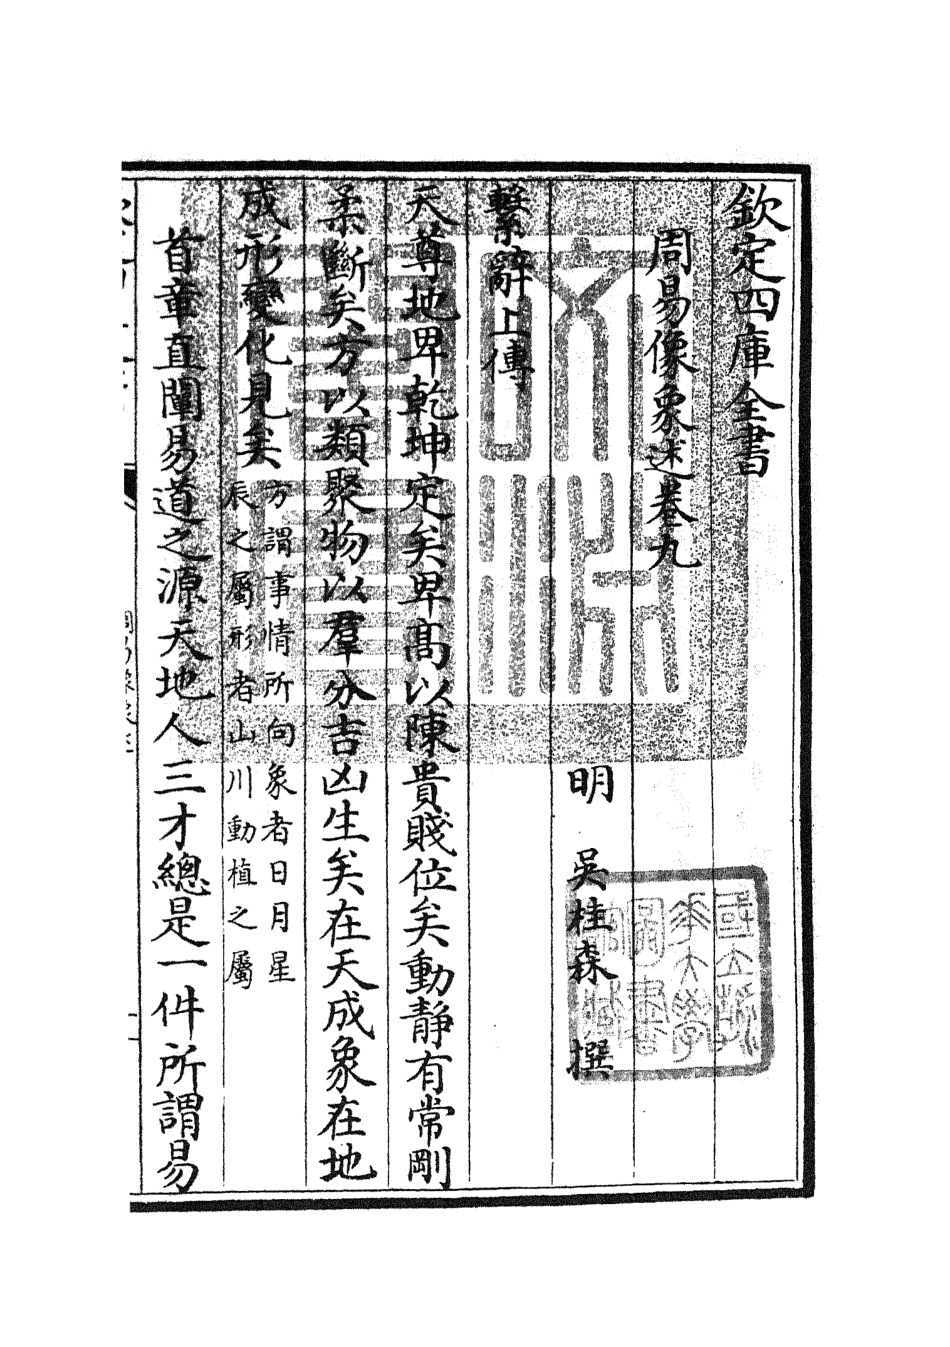 欽定四庫全書
周易像象述卷九
明 吳桂森 撰
繫辭上傳
天尊地卑乾坤定矣卑高以陳貴賤位矣動靜有常剛
柔斷矣方以類聚物以羣分吉凶生矣在天成象在地
成形變化見矣
方謂事情所向象者日月星
辰之屬形者山川動植之屬
首章直闡易道之源天地人三才總是一件所謂易